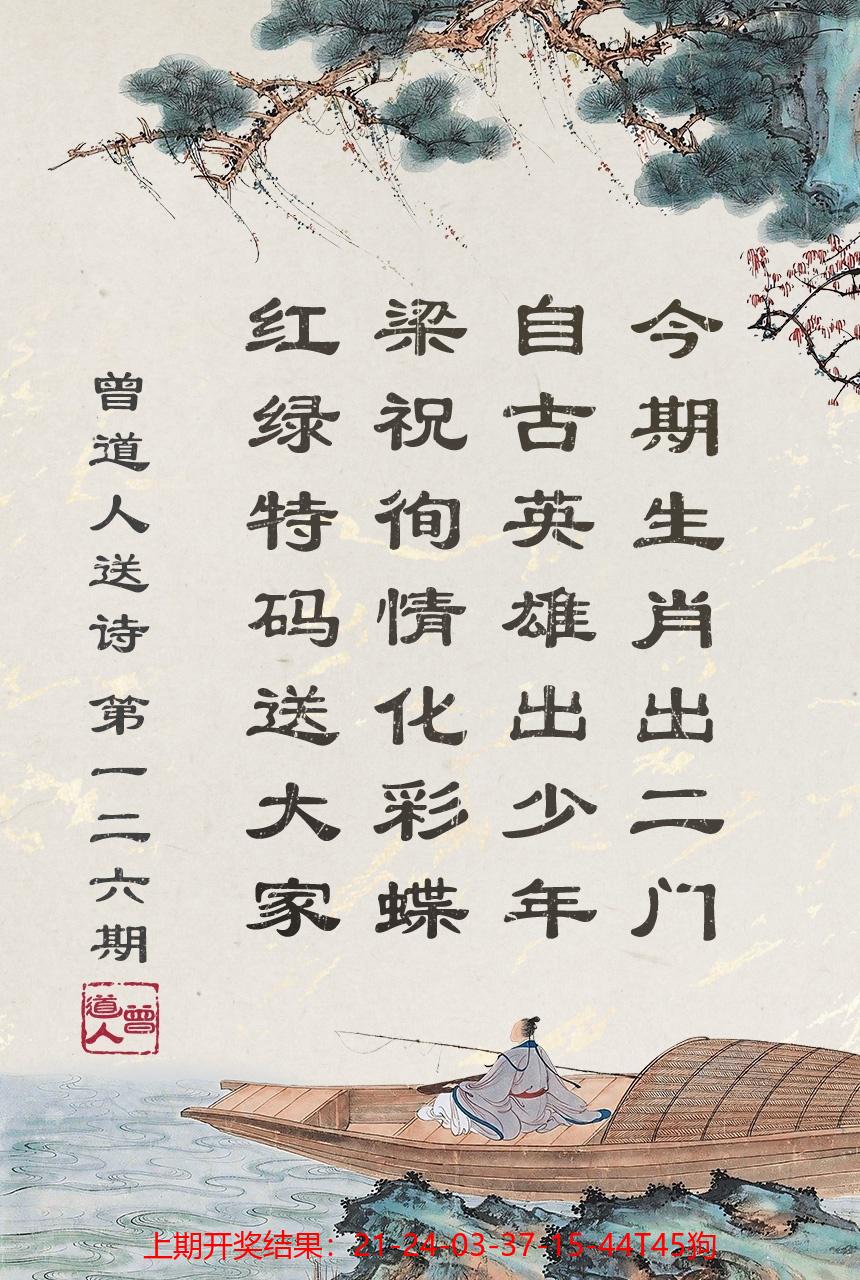 今期生肖出二门
自古英雄出少年
梁祝徇情化彩蝶
红绿特码送大家
曾道人送诗 第一二六期
曾道人
上期开奖结果：21-24-03-37-15-44T45狗